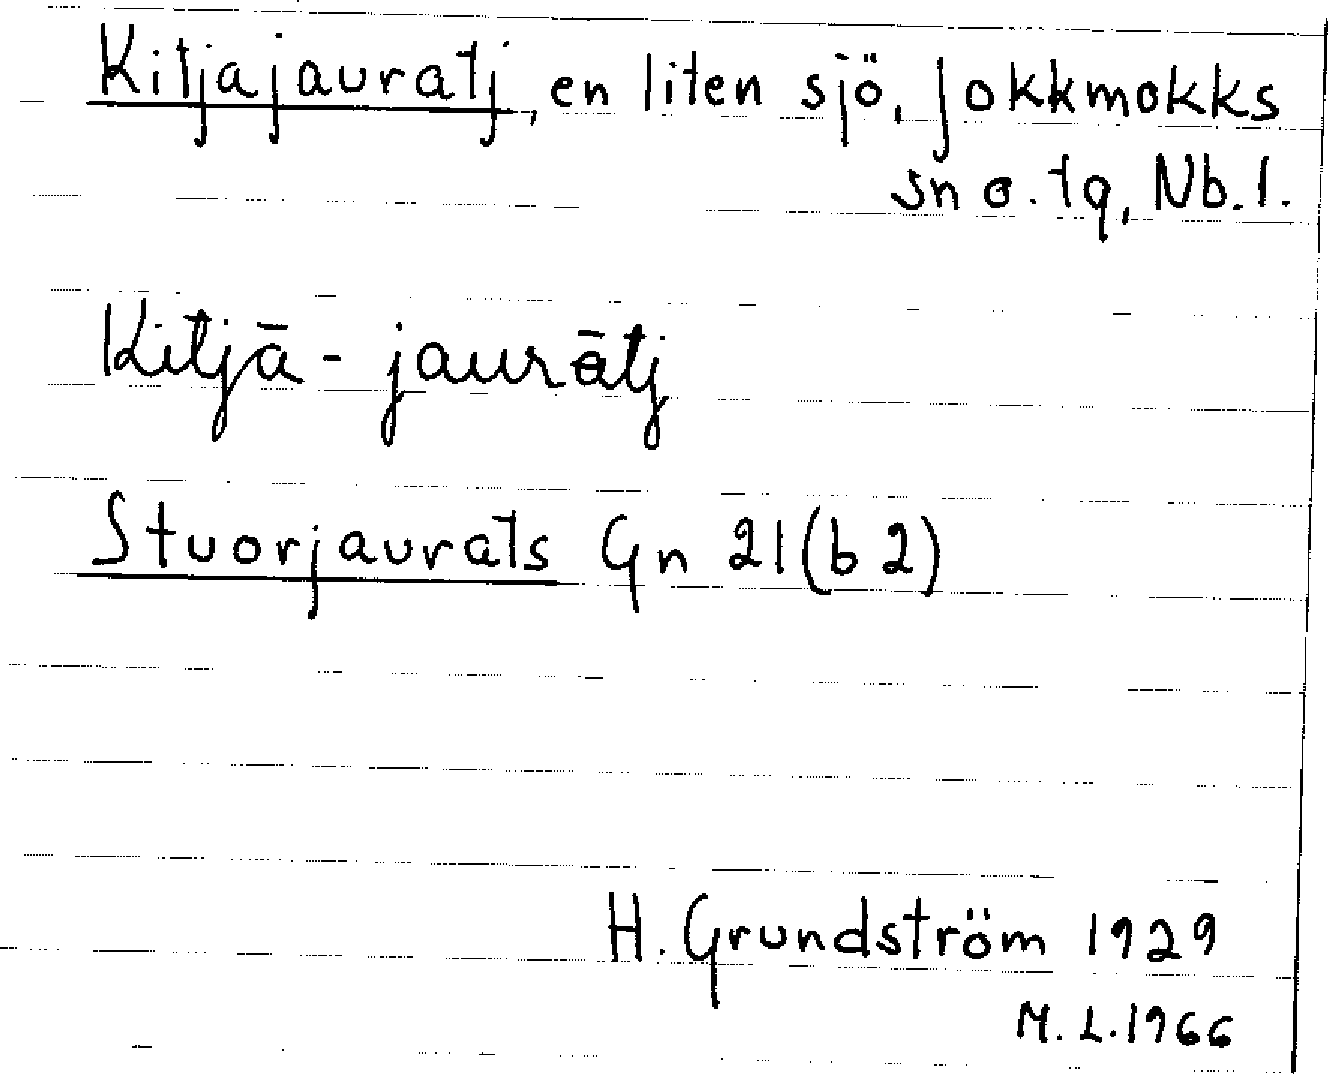 Kitjajauratj, en liten sjö, Jokkmokks
sn o. tg, Nb. l.
Kitjā - jaurātj
Stuorjaurats Gn 21 (b 2)
H. Grundström 1929
M. L. 1966